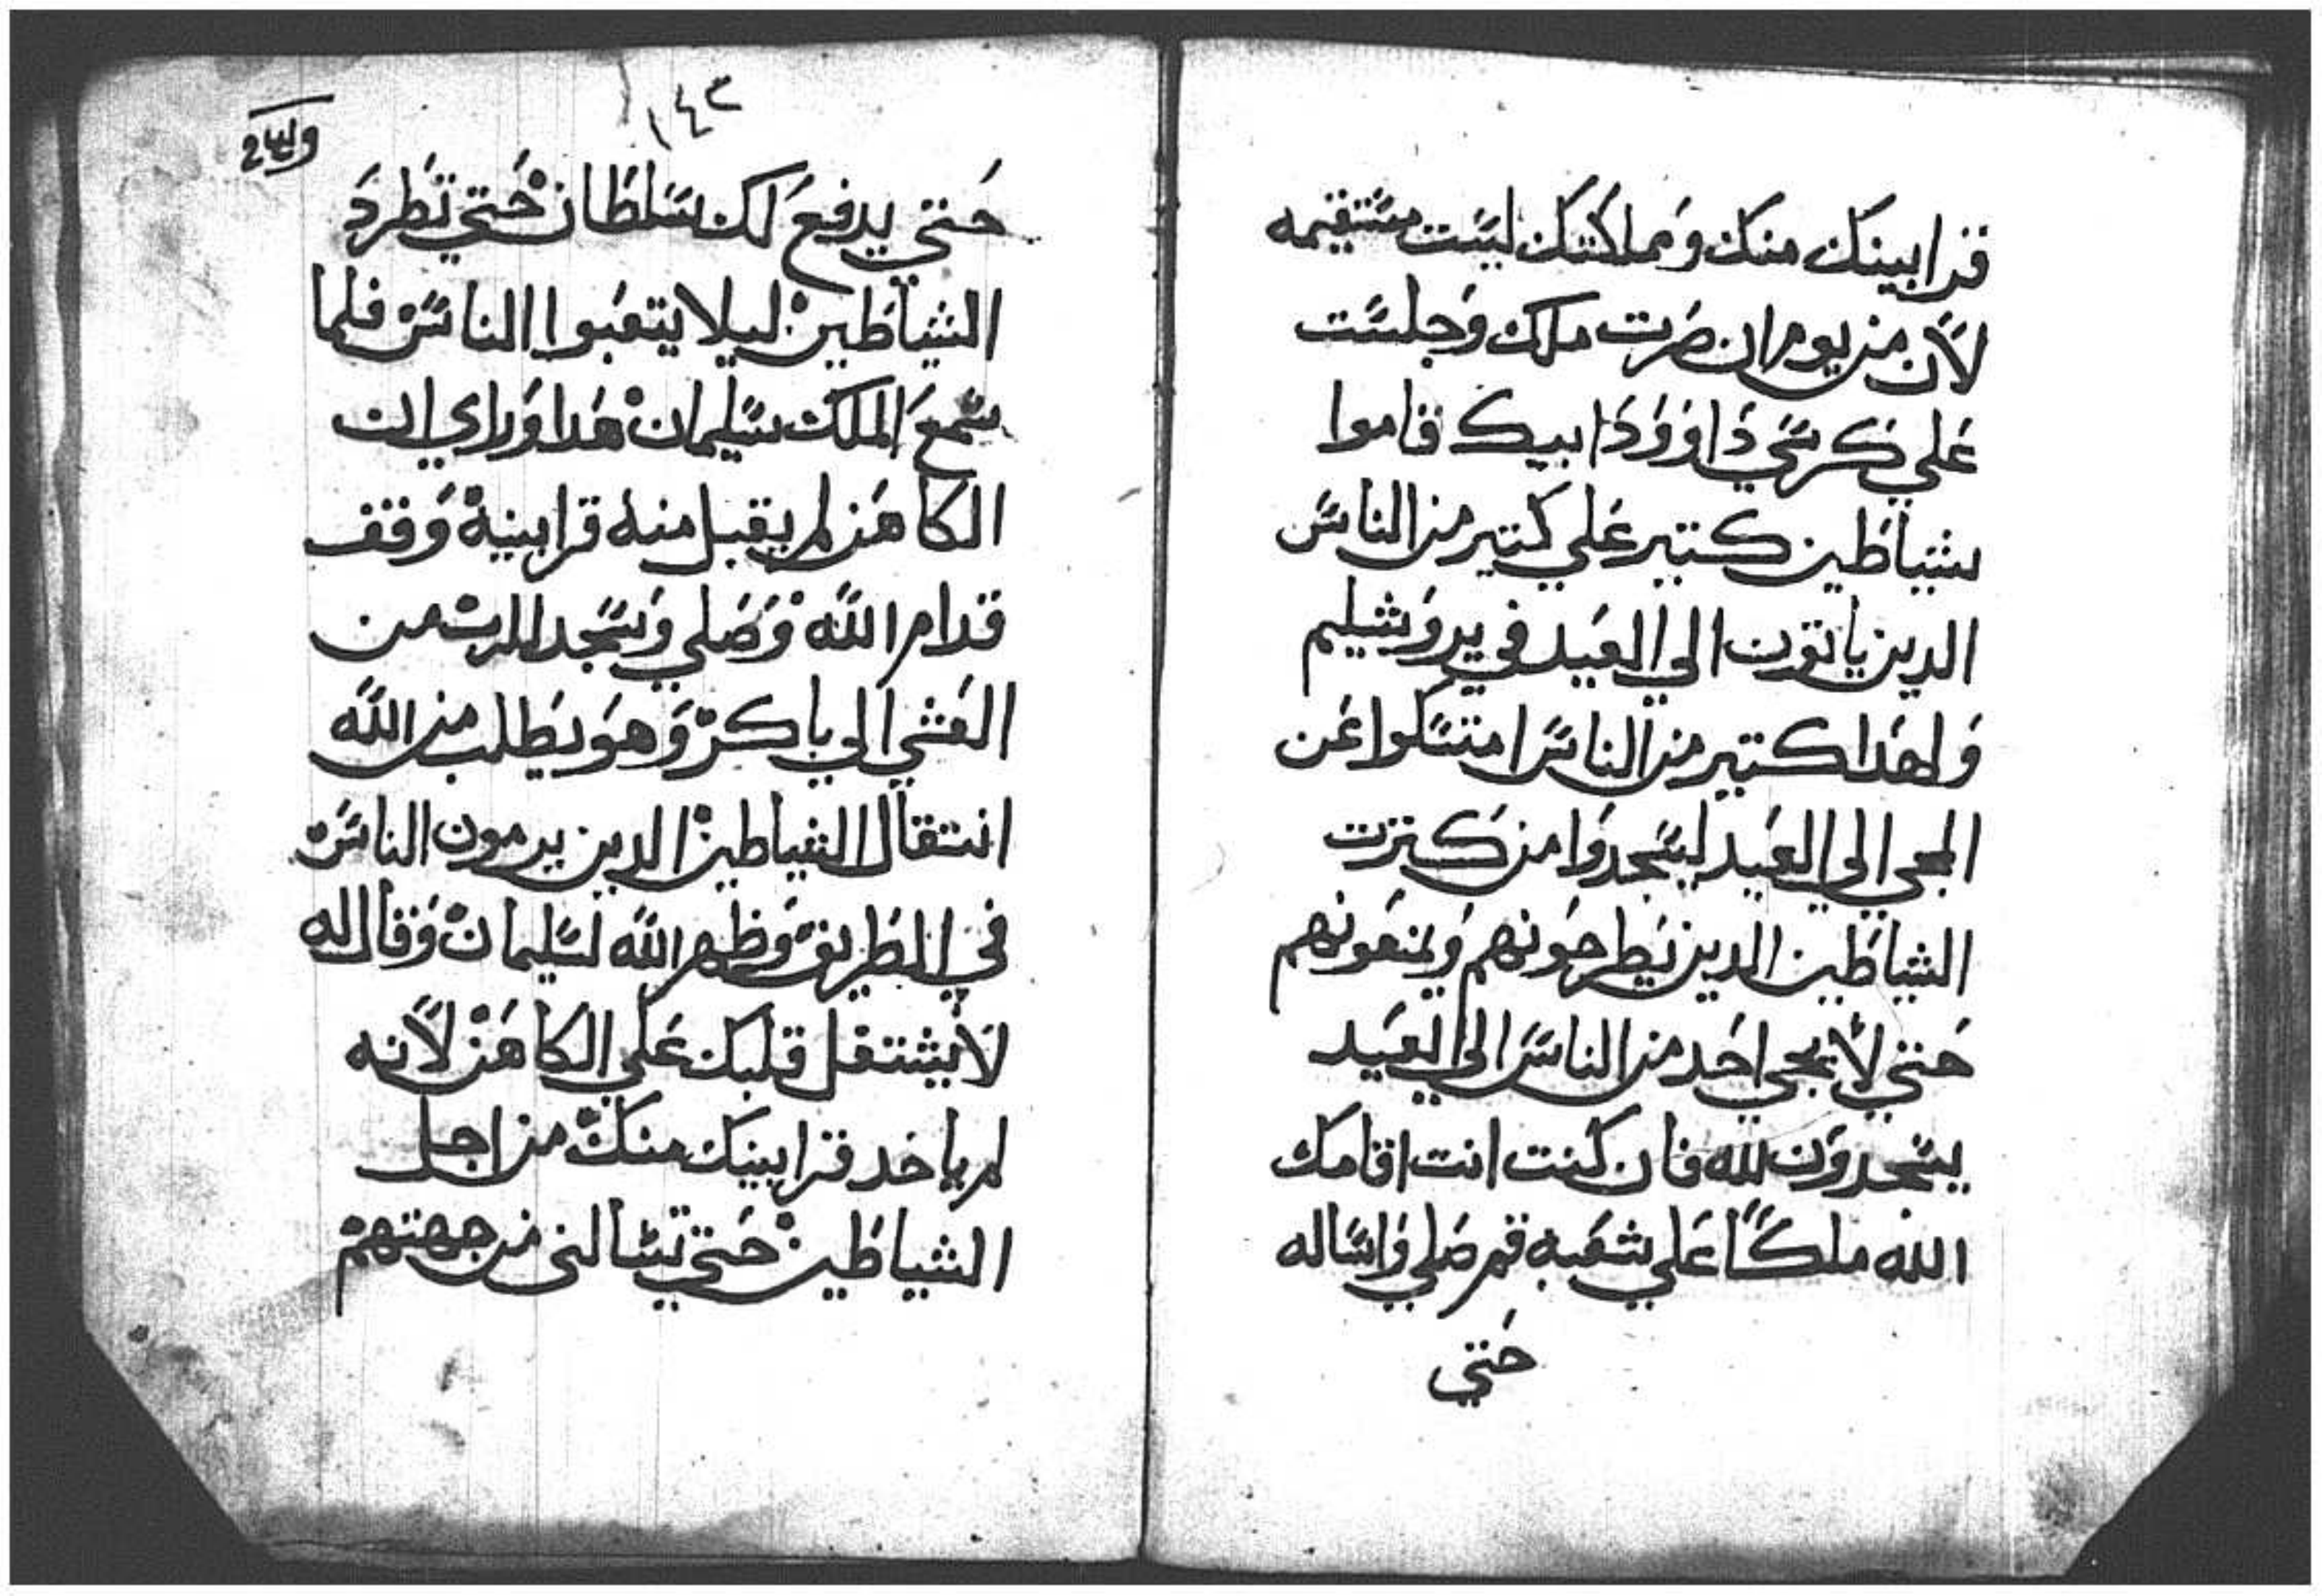 قرابينك منك ومملكتك ليست مستقيمه
لان من يوم ان صرت ملك وجلست
علي كرسي داوود ابيك قاموا
شياطين كتير علي كتير من الناس
الدين ياتون الي العيد في يروشليم
ولهدا كتير من الناس امتسكوا عن
المجي الي العيد ليسجدوا من كترت
الشياطين الدين يطرحونهم ويمنعونهم
حتي لا يجي احد من الناس الي العيد
يسجدون لله فان كنت انت اقامك
الله ملكًا علي شعبه قم صلي واساله
حتي
١٤٣
حتي يدفع لك سلطان حتي تطرد
الشياطين ليلا يتعبوا الناس فلما
سمع الملك سليمان هدا وراي ان
الكاهن لم يقبل منه قرابينه وقف
قدام الله وصلي وسجد للرب من
العشي الي باكر وهو يطلب من الله
انتقال الشياطين الدين يرمون الناس
في الطريق وظهر الله لسليمان وقال له
لا يشتغل قلبك علي الكاهن لانه
لم ياخد قرابينك منك من اجل
الشياطين حتي تسالني من جهتهم